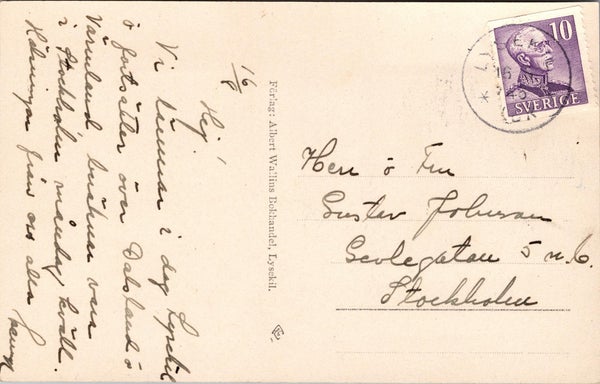 16/8
Hej!
Vi lämnar i dag Lysekil
o fortsätter över Dalsland o
Värmland
i Stockholm måndag kväll.
Hälsningar från oss alla
Förlag: Albert Wallins Bokhandel, Lysekil.
10
SVERIGE
LYSEKIL
16
Herr o Fru
Gustav Johnson
Gevlegatan 5 n.b.
Stockholm